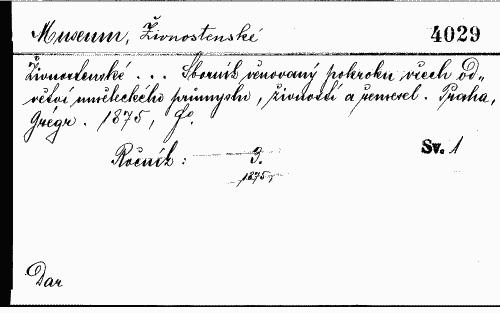 Museum, Živnostenské 4029
Živnostenské . . . Sborník věnovaný pokroku všech od-
větví uměleckého průmyslu, živností a řemesel. Praha,
Grégr. 1875, f°.
Ročník: 3. Sv. 1
1875,
Dar